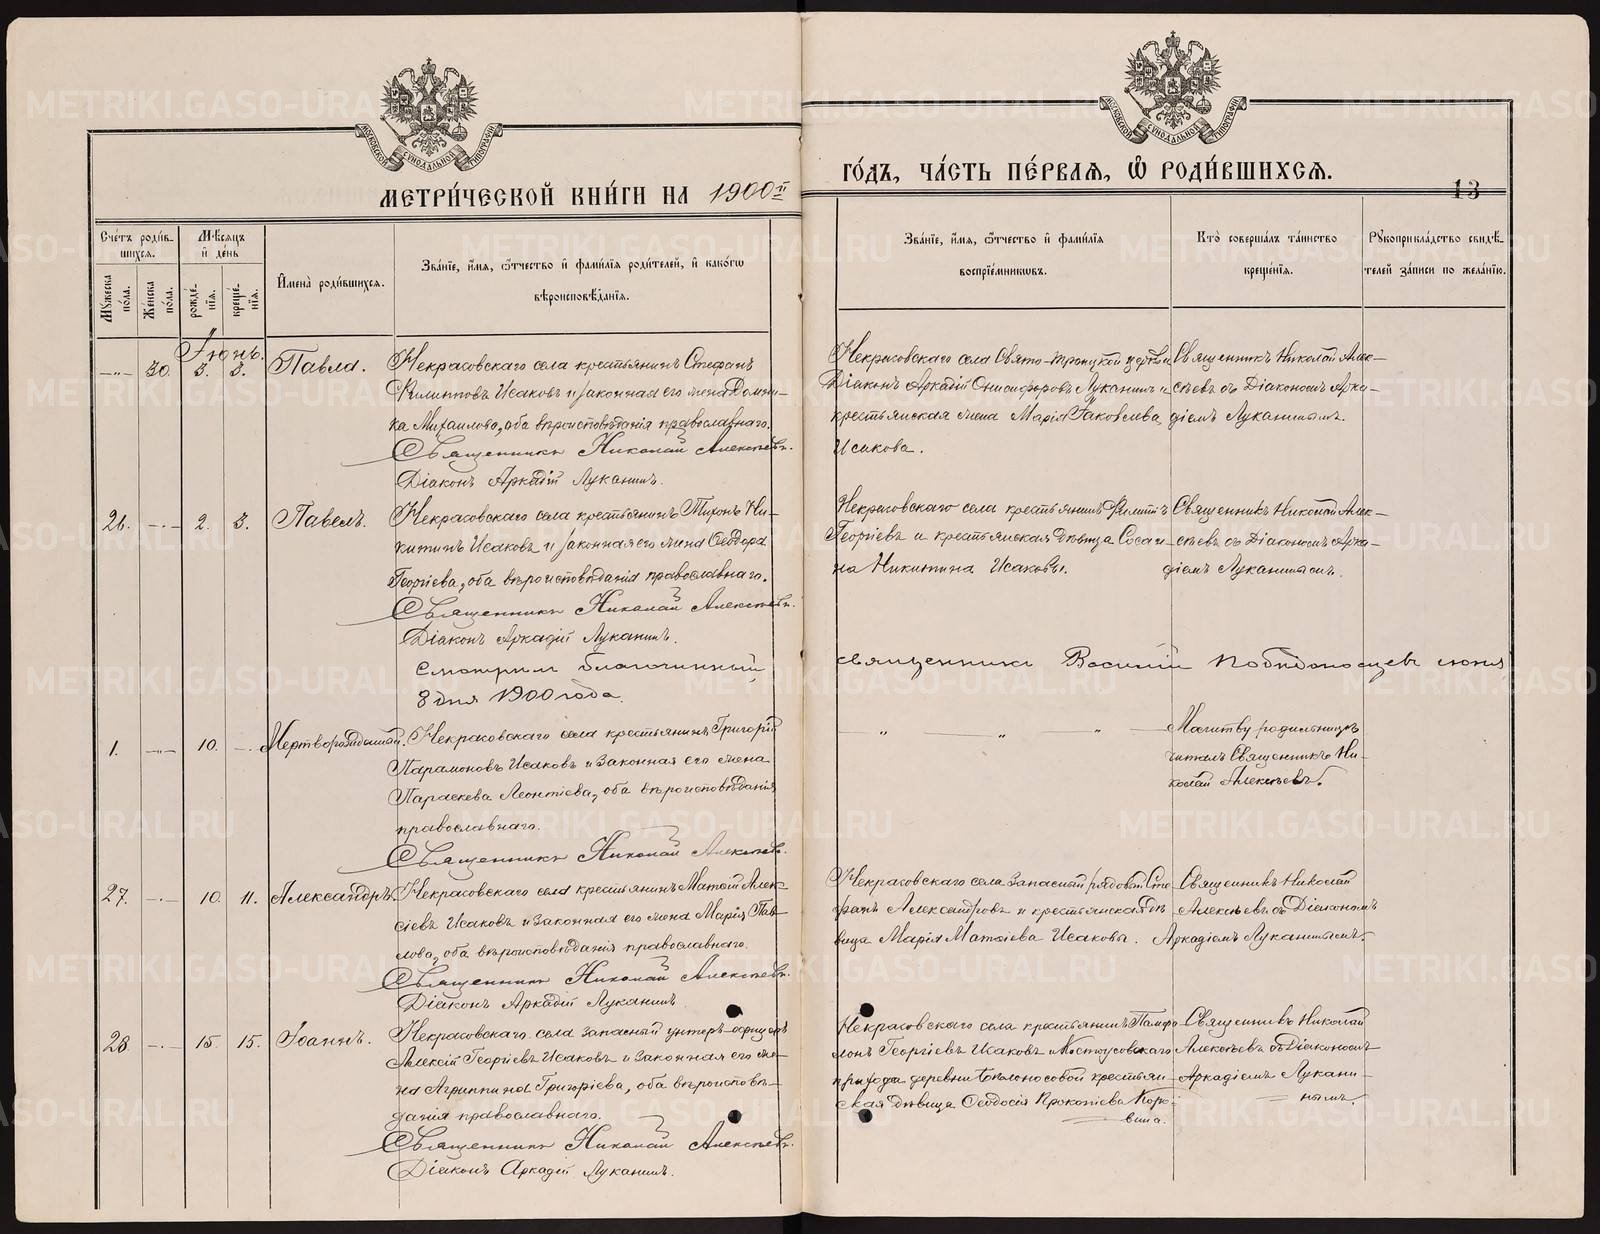 МЕТРИ́ЧЕСКОЙ КНИ́ГИ НА 1900й
ГО́ДЪ, ЧА́СТЬ ПЕ́РВАѦ, Ѽ РОДИ́ВШИХСѦ.
13
Сче́тъ роди́в-
шихсѧ.
Мѣ́сѧцъ
и҆ де́нь
Мꙋ́жеска
по́ла.
Же́нска
по́ла.
рожде́-
нїѧ.
креще́-
нїѧ.
И҆мена̀ роди́вшихсѧ.
Зва́нїе, и҆́мѧ, ѻ҆́тчество и҆ фами́лїѧ роди́телей, и҆ како́гѡ
вѣроисповѣ́данїѧ.
Зва́нїе, и҆́мѧ, ѻ҆́тчество и҆ фами́лїѧ
воспрїе́мниковъ.
Кто̀ соверша́лъ та́инство
креще́нїѧ.
Рꙋкоприкла́дство свидѣ́-
телей за́писи по жела́нїю.
Іюнь.
—„— 30. 3. 3. Павла.
Некрасовскаго села крестьянинъ Стефанъ
Филипповъ Исаковъ и законная его жена Домни-
ка Михаилова, оба вѣроисповѣданія православнаго.
Священникъ Николай Алексѣевъ.
Діаконъ Аркадій Луканинъ.
Некрасовскаго села Свято-Троицкой церкви
Діаконъ Аркадій Онисифоровъ Луканинъ и
крестьянская жена Марія Іаковлева
Исакова.
Священникъ Николай Алек-
сѣевъ съ Діакономъ Арка-
діемъ Луканинымъ.
26. —„— 2. 3. Павелъ.
Некрасовскаго села крестьянинъ Тихонъ Ни-
китинъ Исаковъ и законная его жена Ѳеодора
Георгіева, оба вѣроисповѣданія православнаго.
Священникъ Николай Алексѣевъ.
Діаконъ Аркадій Луканинъ.
Некрасовскаго села крестьянинъ Филиппъ
Георгіевъ и крестьянская дѣвица Соса
на Никитина Исаковы.
Священникъ Николай Алек-
сѣевъ съ Діакономъ Арка-
діемъ Луканинымъ.
Смотрѣлъ благочинный
священникъ Василій Побѣдоносцевъ іюня
8 дня 1900 года.
1. —„— 10. —. Мертворожденный.
Некрасовскаго села крестьянинъ Григорій
Парамоновъ Исаковъ и законная его жена
Параскева Леонтіева, оба вѣроисповѣданія
православнаго.
Священникъ Николай Алексѣевъ.
„ „ „
Молитву родильницѣ
читалъ Священникъ Ни-
колай Алексѣевъ.
27. —„— 10. 11. Александръ.
Некрасовскаго села крестьянинъ Матѳей Алек-
сіевъ Исаковъ и законная его жена Марія Пав-
лова, оба вѣроисповѣданія православнаго.
Священникъ Николай Алексѣевъ.
Діаконъ Аркадій Луканинъ.
Некрасовскаго села запасный рядовой Сте
фанъ Александровъ и крестьянская дѣ
вица Марія Матѳіева Исаковы.
Священникъ Николай
Алексѣевъ съ Діакономъ
Аркадіемъ Луканинымъ.
28. —„— 15. 15. Іоаннъ.
Некрасовскаго села запасный унтеръ-офицеръ
Алексій Георгіевъ Исаковъ и законная его же-
на Агриппина Григоріева, оба вѣроисповѣ-
данія православнаго.
Священникъ Николай Алексѣевъ.
Діаконъ Аркадій Луканинъ.
Некрасовскаго села крестьянинъ Памфи
лонъ Георгіевъ Исаковъ
прихода деревни крестьян-
ская дѣвица Ѳеодосія Прокопіева Коро-
вина.
Священникъ Николай
Алексѣевъ съ Діакономъ
Аркадіемъ Лукани-
нымъ.
METRIKI.GASO-URAL.RU